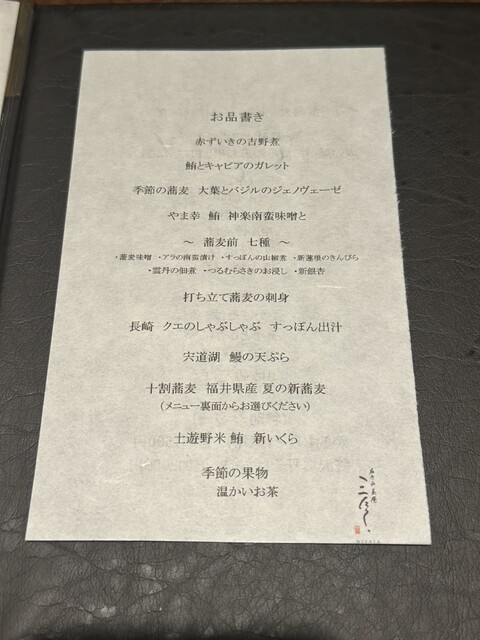 お品書き
赤ずいきの吉野煮
鮪とキャビアのガレット
季節の蕎麦 大葉とバジルのジェノヴェーゼ
やま幸 鮪 神楽南蛮味噌と
~ 蕎麦前 七種 ~
・蕎麦味噌 ・アラの南蛮漬け ・すっぽんの山椒煮 ・新蓮根のきんぴら
・雲丹の佃煮 ・つるむらさきのお浸し ・新銀杏
打ち立て蕎麦の刺身
長崎 クエのしゃぶしゃぶ すっぽん出汁
宍道湖 鰻の天ぷら
十割蕎麦 福井県産 夏の新蕎麦
(メニュー裏面からお選びください)
土遊野米 鮪 新いくら
季節の果物
温かいお茶